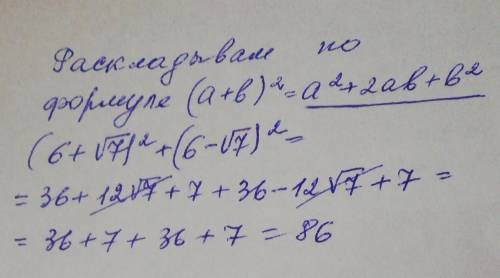 Раскладывам по
формуле (a+b)²=a²+2ab+b²
(6+√7)²+(6-√7)²=
=36+12√7+7+36-12√7+7=
=36+7+36+7=86